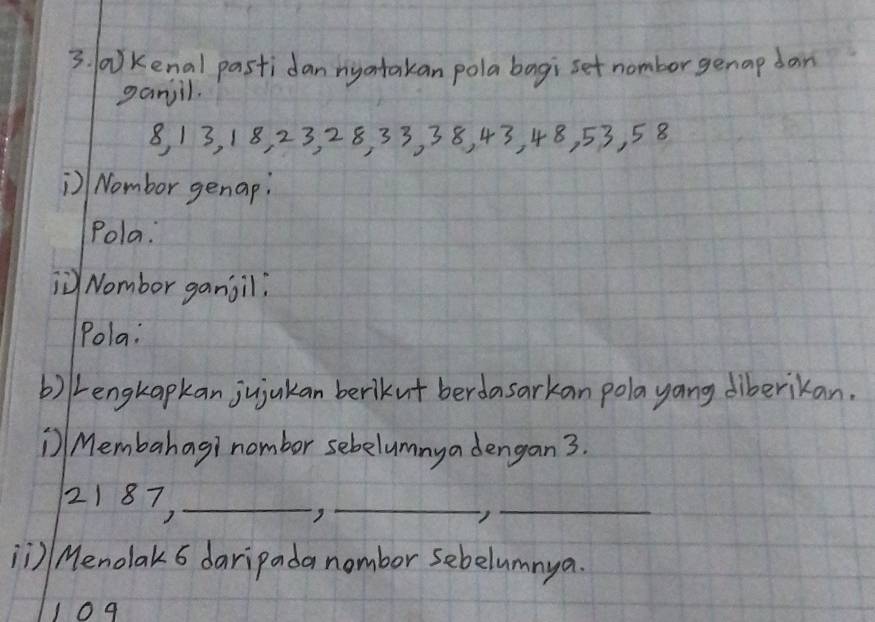 3. a) Kenal pasti dan nyatakan pola bagi set nombor genap dan
ganjil.
8, 13, 18, 23, 28, 33, 38, 43, 48, 53, 58
i) Nombor genap:
Pola:
ii) Nombor ganjil:
Pola:
b) Lengkapkan jujukan berikut berdasarkan pola yang diberikan.
i) Membahagi nombor sebelumnya dengan 3.
2187, ____, ____, ____
ii) Menolak 6 daripada nombor sebelumnya.
109